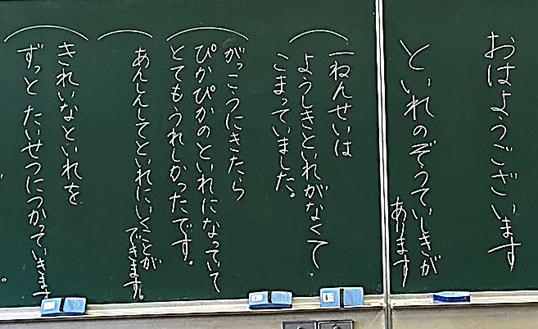 おはようございます
といれのぞうていしきが
あります
一ねんせいは
ようしきといれがなくて
こまっていました。
がっこうにきたら
ぴかぴかのといれになっていて
とてもうれしかったです。
あんしんしてといれにいくことが
できます。
きれいなといれを
ずっとたいせつにつかっていきます